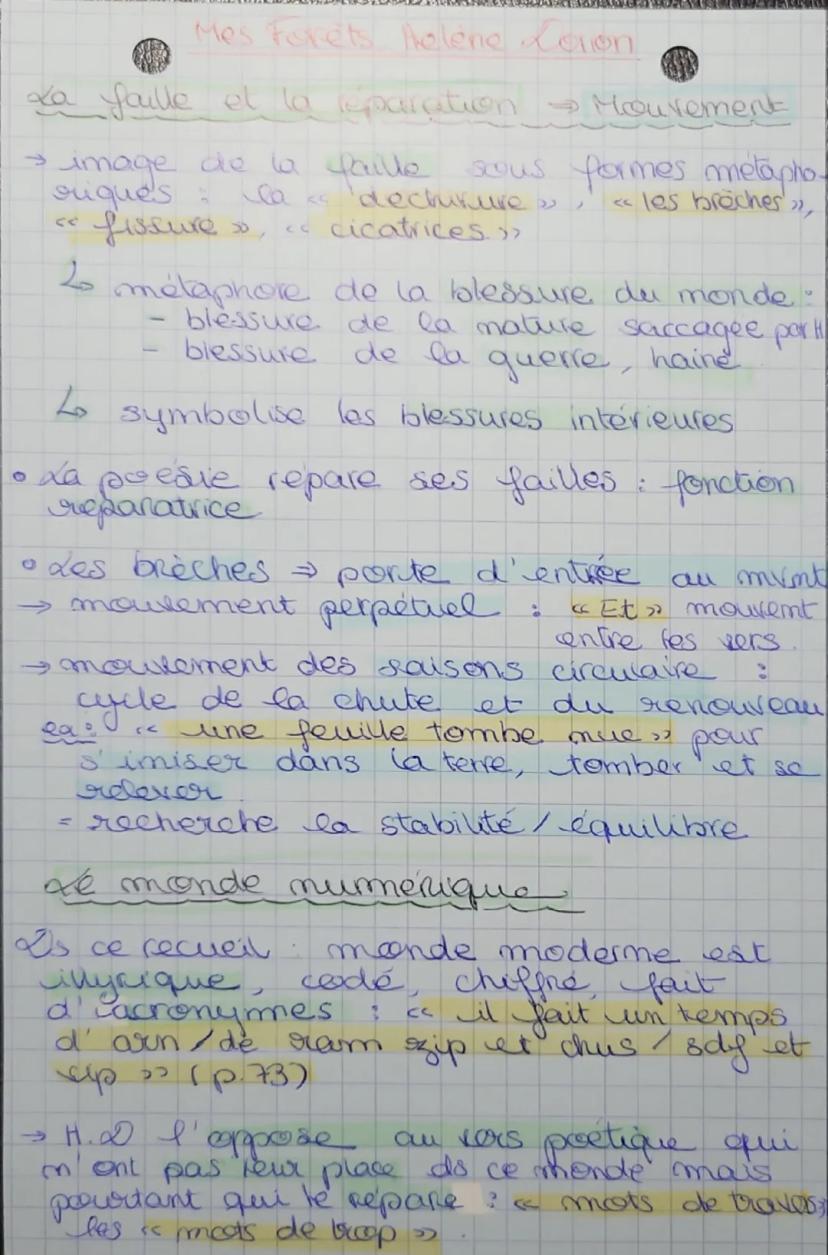 Mes Forêts Hélène Dorion
La faille et la réparation → Mouvement
→ image de la faille sous formes métapho-
riques : la « déchirure », « les brèches »,
« fissure », « cicatrices »
↳ métaphore de la blessure du monde :
- blessure de la nature saccagée par H
- blessure de la guerre, haine
↳ symbolise les blessures intérieures
• La poésie répare ses failles : fonction
réparatrice
• Les brèches ⇒ porte d'entrée au mvmt
→ mouvement perpétuel : « Et » mouvemt
entre les vers.
→ mouvement des saisons circulaire :
cycle de la chute et du renouveau
ex : « une feuille tombe nue » pour
s'imiser dans la terre, tomber et se
relever
= recherche la stabilité / équilibre
Le monde numérique
Ds ce recueil : monde moderne est
illyrique, codé, chiffré, fait
d'acronymes : « il fait un temps
d'arn / de ram zip et chus / sdf et
vip » (p.73)
→ H.D l'oppose au vers poétique qui
n'ont pas leur place ds ce monde mais
pourtant qui le répare : « mots de travers »
les « mots de trop ».